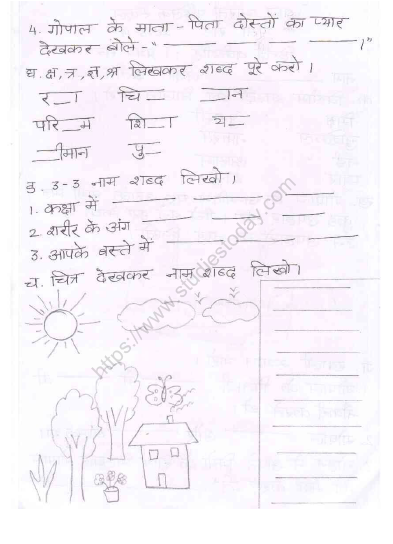 4. गोपाल के माता - पिता दोस्तों का प्यार
देखकर बोले - " ____ ____ ____ ।"
घ. क्ष, त्र, ज्ञ, श्र लिखकर शब्द पूरे करो।
र__ा चि__ __ान
परि__म शि__ा य__
__ीमान पु__
ङ. ३-३ नाम शब्द लिखो।
1. कक्षा में ____ ____ ____
2. शरीर के अंग ____ ____ ____
3. आपके बस्ते में ____ ____ ____
च. चित्र देखकर नाम शब्द लिखो।
https://www.studiestoday.com